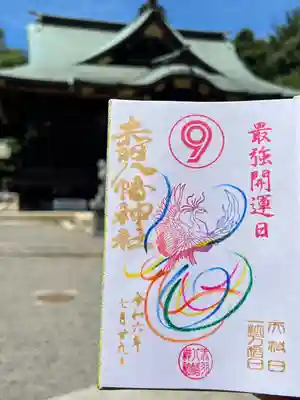 最強開運日
天赦日
一粒万倍日
⑨
赤羽八幡神社
令和六年
七月廿九日